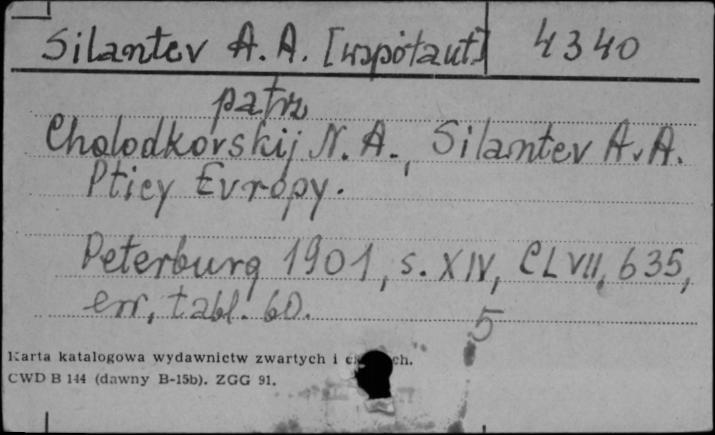 Silantev A. A. [współaut] 4340
patrz
Cholodkovskij N. A., Silantev A. A.
Pticy Evropy.
Peterburg 1901, s. XIV, CLVII, 635,
err, tabl. 60.
5
Karta katalogowa wydawnictw zwartych i ch.
CWD B 144 (dawny B-15b). ZGG 91.